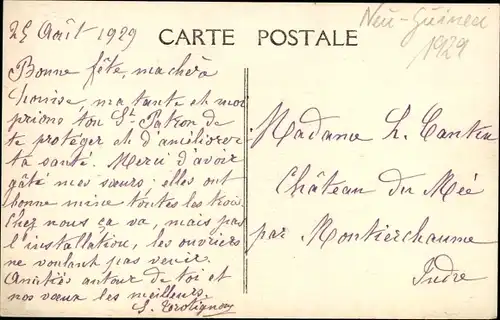 25 Août 1929
CARTE POSTALE
Neu-Guinea
1929
Bonne fête, ma chère
Louise, ma tante et moi
prions ton St Patron de
te protéger et d'améliorer
ta santé. Merci d'avoir
gâté mes sœurs : elles ont
bonne mine toutes les trois.
Chez nous ça va, mais pas
l'installation, les ouvriers
ne voulant pas venir.
Amitiés autour de toi et
nos vœux les meilleurs.
Madame L. Cantin
Château du Mée
par Montierchaume
Indre